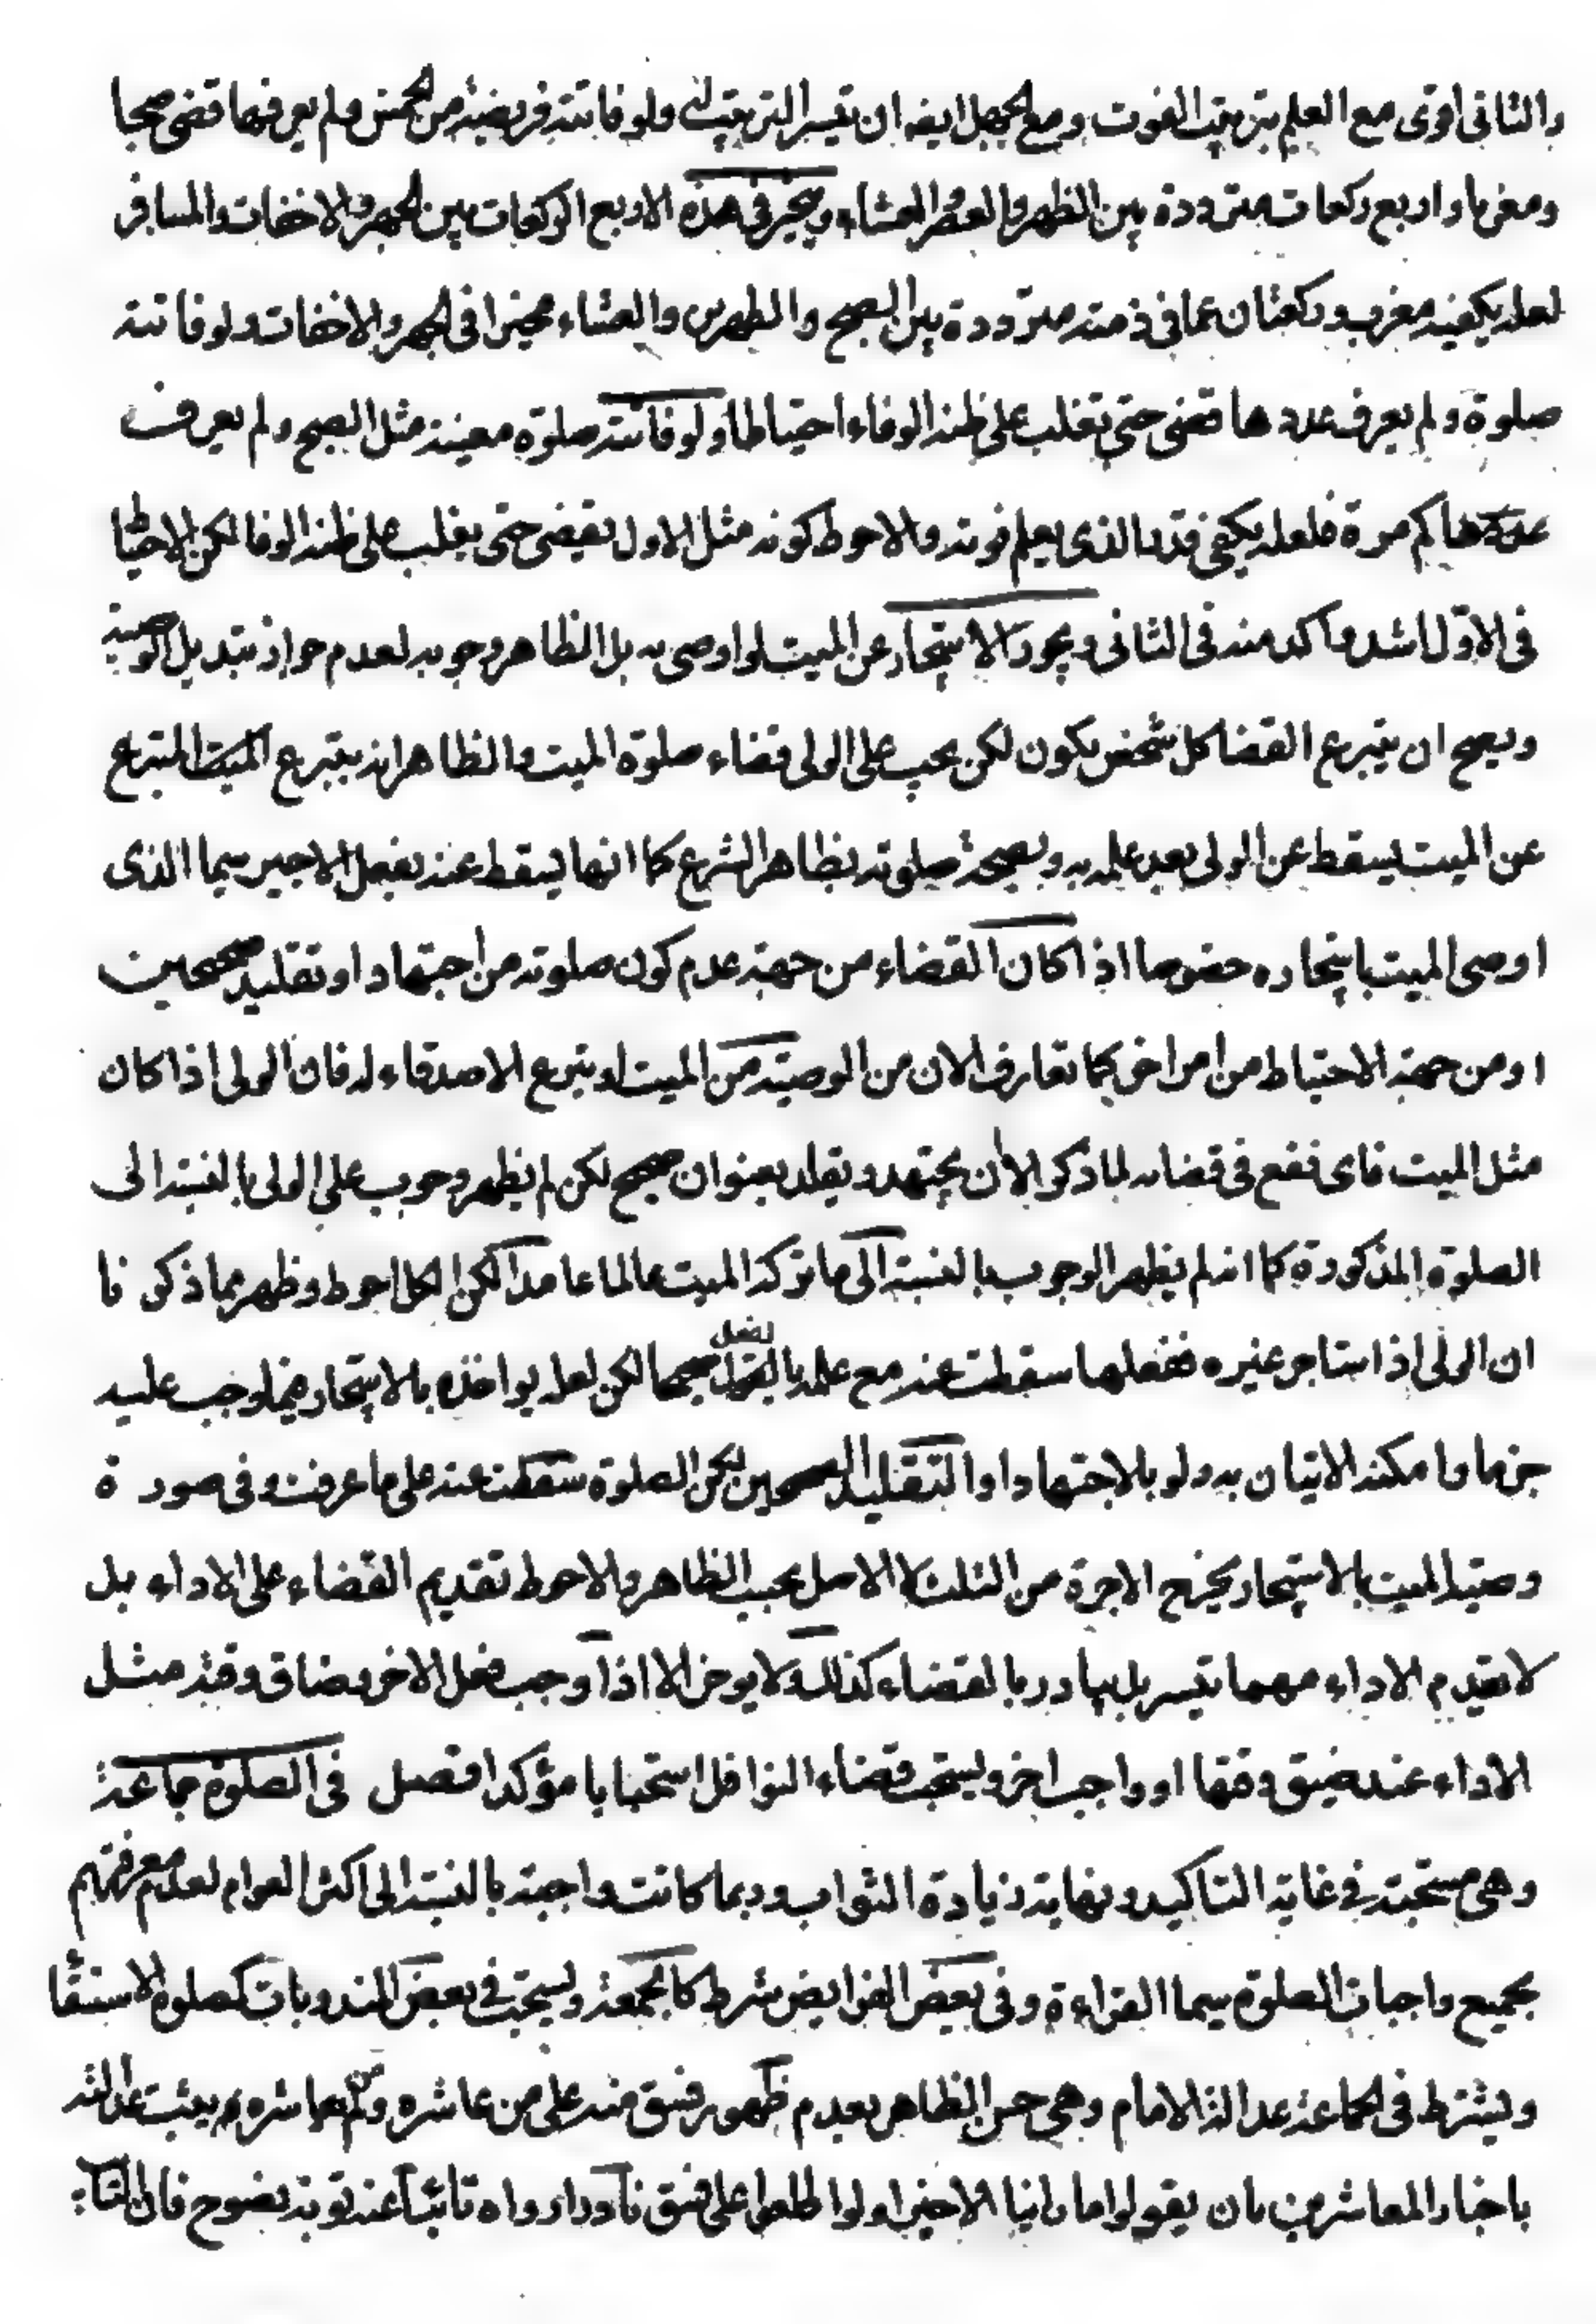 والثانی اقوی مع العلم بترتیب الفوت ومع الجهل ایضه ان تیسر الترتیب له ولو فاتته فریضة من الخمس ولم یعرفها قضی صبحا
ومغربا واربع رکعات مترددة بین الظهر والعصر والعشاء ویتخیر فی هذه الاربع الرکعات بین الجهر والاخفات والمسافر
لعله یکفیه مغرب ورکعتان عما فی ذمته مترددة بین الصبح والظهرین والعشاء مخیرا فی الجهر والاخفات ولو فاتته
صلوة ولم یعرف عددها قضی حتی تغلب علی ظنه الوفاء احتیاطا ولو فاتته صلوة معینة مثل الصبح ولم یعرف
عددها کم مرة فلعله یکفی قدر الذی یعلم فوته والاحوط کونه مثل الاول یقیضی حتی یغلب علی ظنه الوفا لکن الاحتیاط
فی الاول اشد واکد منه فی الثانی ویجوز الاستیجار عن المیت لو اوصی به بل الظاهر وجوبه لعدم جواز تبدیل الوصیة
ویصح ان یتبرع القضا کل شخص یکون لکن یجب علی الولی قضاء صلوة المیت والظاهر انه بتبرع المتبرع
عن المیت یسقط عن الولی بعد علمه به وبصحة صلوته بظاهر الشرع کما انها یسقط عنه بفعل الاجیر سیما الذی
اوصی المیت باستیجاره خصوصا اذا کان القضاء من جهة عدم کون صلوته من اجتهاد او تقلید صحیحین
او من جهة الاحتیاط من امر اخر کما تعارف الان من الوصیة من المیت او تبرع الاصدقاء له فان الولی اذا کان
مثل المیت فای نفع فی قضائه لما ذکر الا ان یجتهد و یقلد بعنوان صحیح لکن لم یظهر وجوب علی الولی بالنسبة الی
الصلوة المذکورة کما انه لم یظهر الوجوب بالنسبة الی ما ترکه المیت عالما عامدا لکن الکل احوط وظهر مما ذکر نا
ان الولی اذا استاجر غیره ففعلها سقطت عنه مع علمه بالفعل صحیحا لکن لعله یواخذه بالاستیجار فیما وجب علیه
جزما وامکنه الاتیان به ولو بالاجتهاد او التقلید الصحیحین لکن الصلوة سقطت عنه علی ما عرفت وفی صور ة
وصیة المیت بالاستیجار یخرج الاجرة من الثلث لا الاصل بحسب الظاهر والاحوط تقدیم القضاء علی الاداء بل
لا یقدم الاداء مهما تیسر بل یبادر بالقضاء کذلک ولا یوخر الا اذا وجب فعل الاخر وضاق وقته مثل
الاداء عند ضیق وقتها او واجب اخر ویستحب قضاء النوافل استحبابا مؤکدا فصل فی الصلوة جماعة
وهی مستحبة فی غایة التاکید ونهایة زیادة الثواب وربما کانت واجبة بالنسبة الی اکثر العوام لعدم معرفتهم
بجمیع واجبات الصلوة سیما القراءة وفی بعض الفرایض شرط کالجمعة ویستحب فی بعض المندوبات کصلوة الاستسقا
ویشترط فی الجماعة عدالة الامام وهی حسن الظاهر بعدم ظهور فسق منه علی من عاشره ومن لم یعاشره یثبت عدالته
باخبار المعاشرین بان یقولوا ما راینا الا خیرا ولو اطلعوا علی فسق نادرا رواه تائبا عنه توبة نصوح فان التا